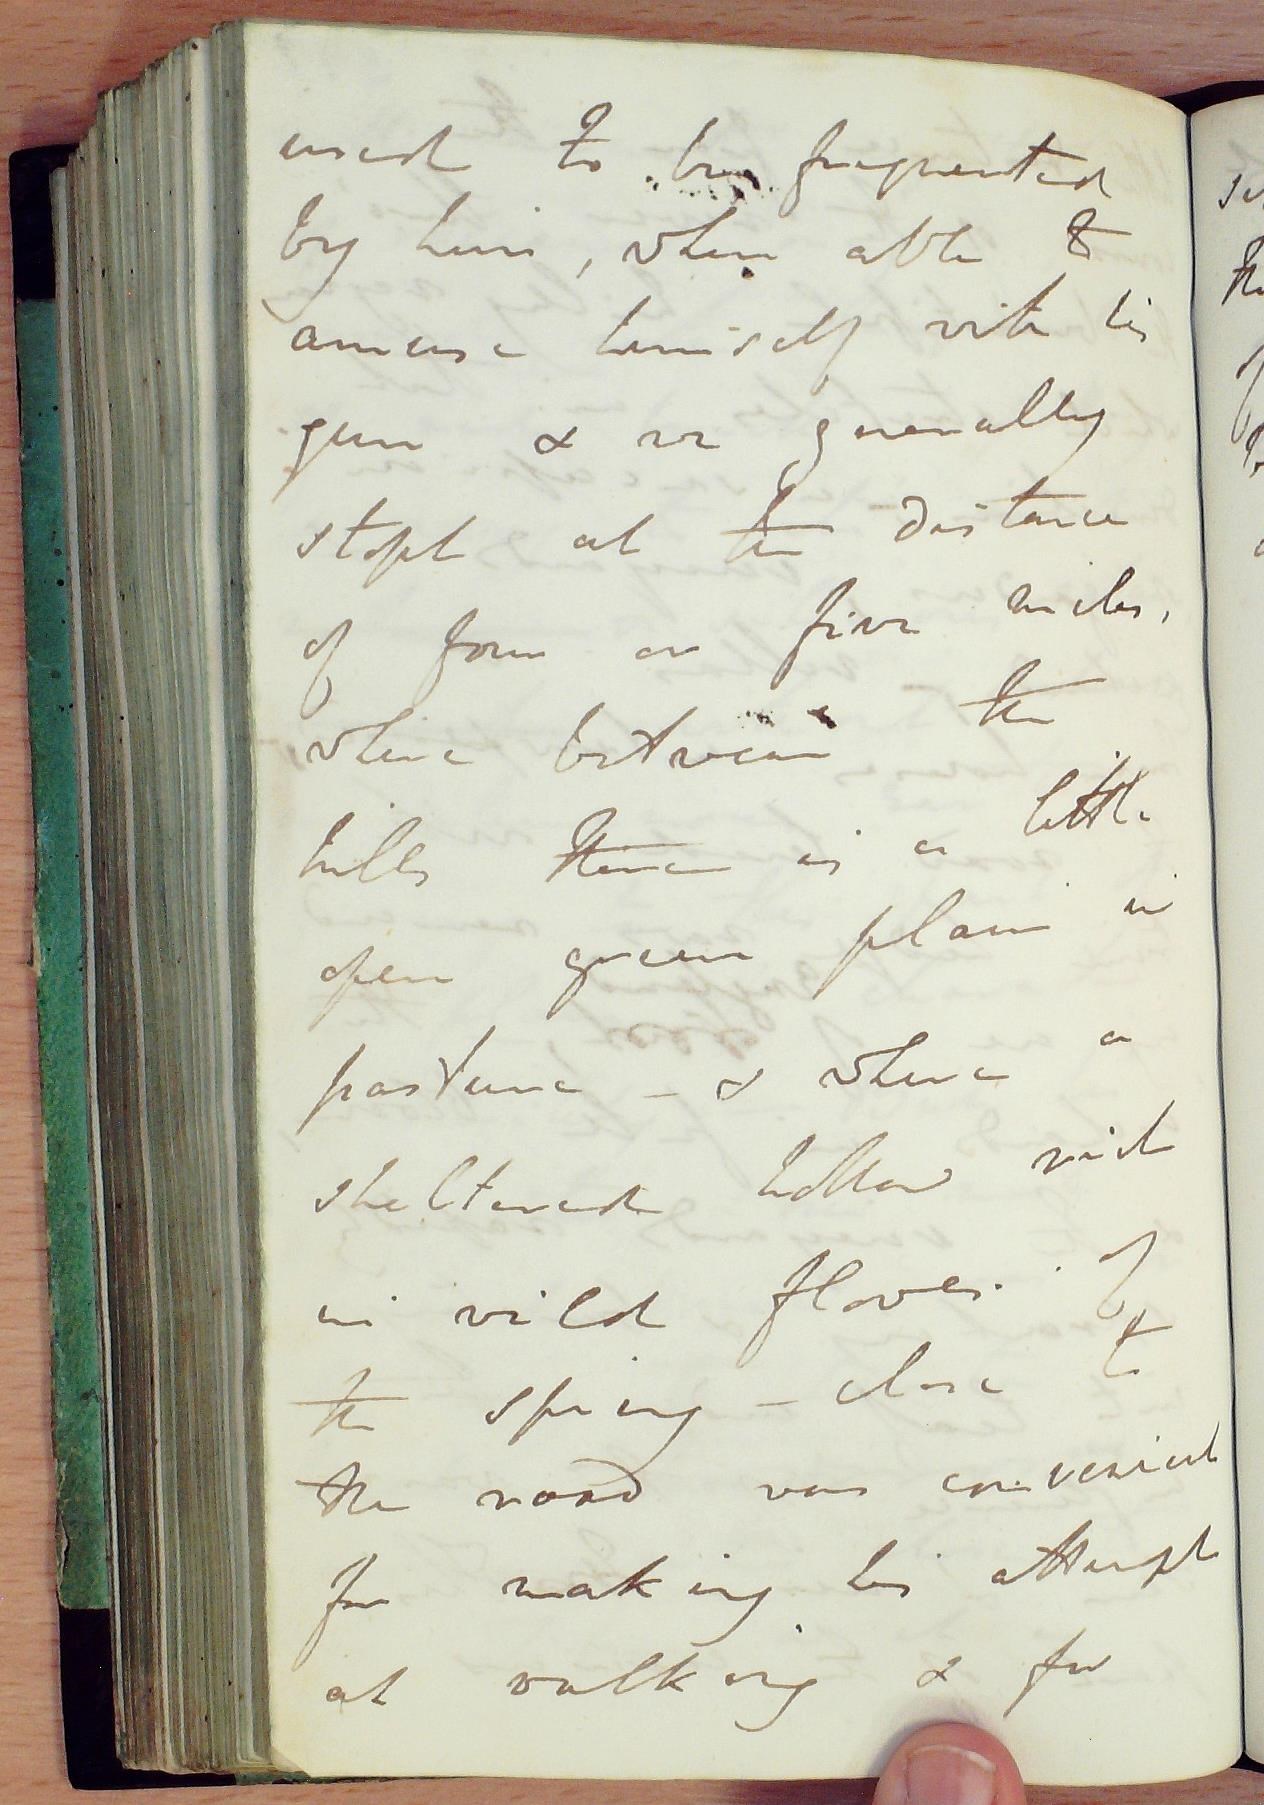 used to be frequented
by him, when able to
amuse himself with his
gun & we generally
stopt at the distance
of four or five miles,
where between the
hills there is a little
open green plain in
pasture - & where a
sheltered hollow rich
in wild flowers of
the spring - close to
the road was convenient
for making his attempt
at walking & for